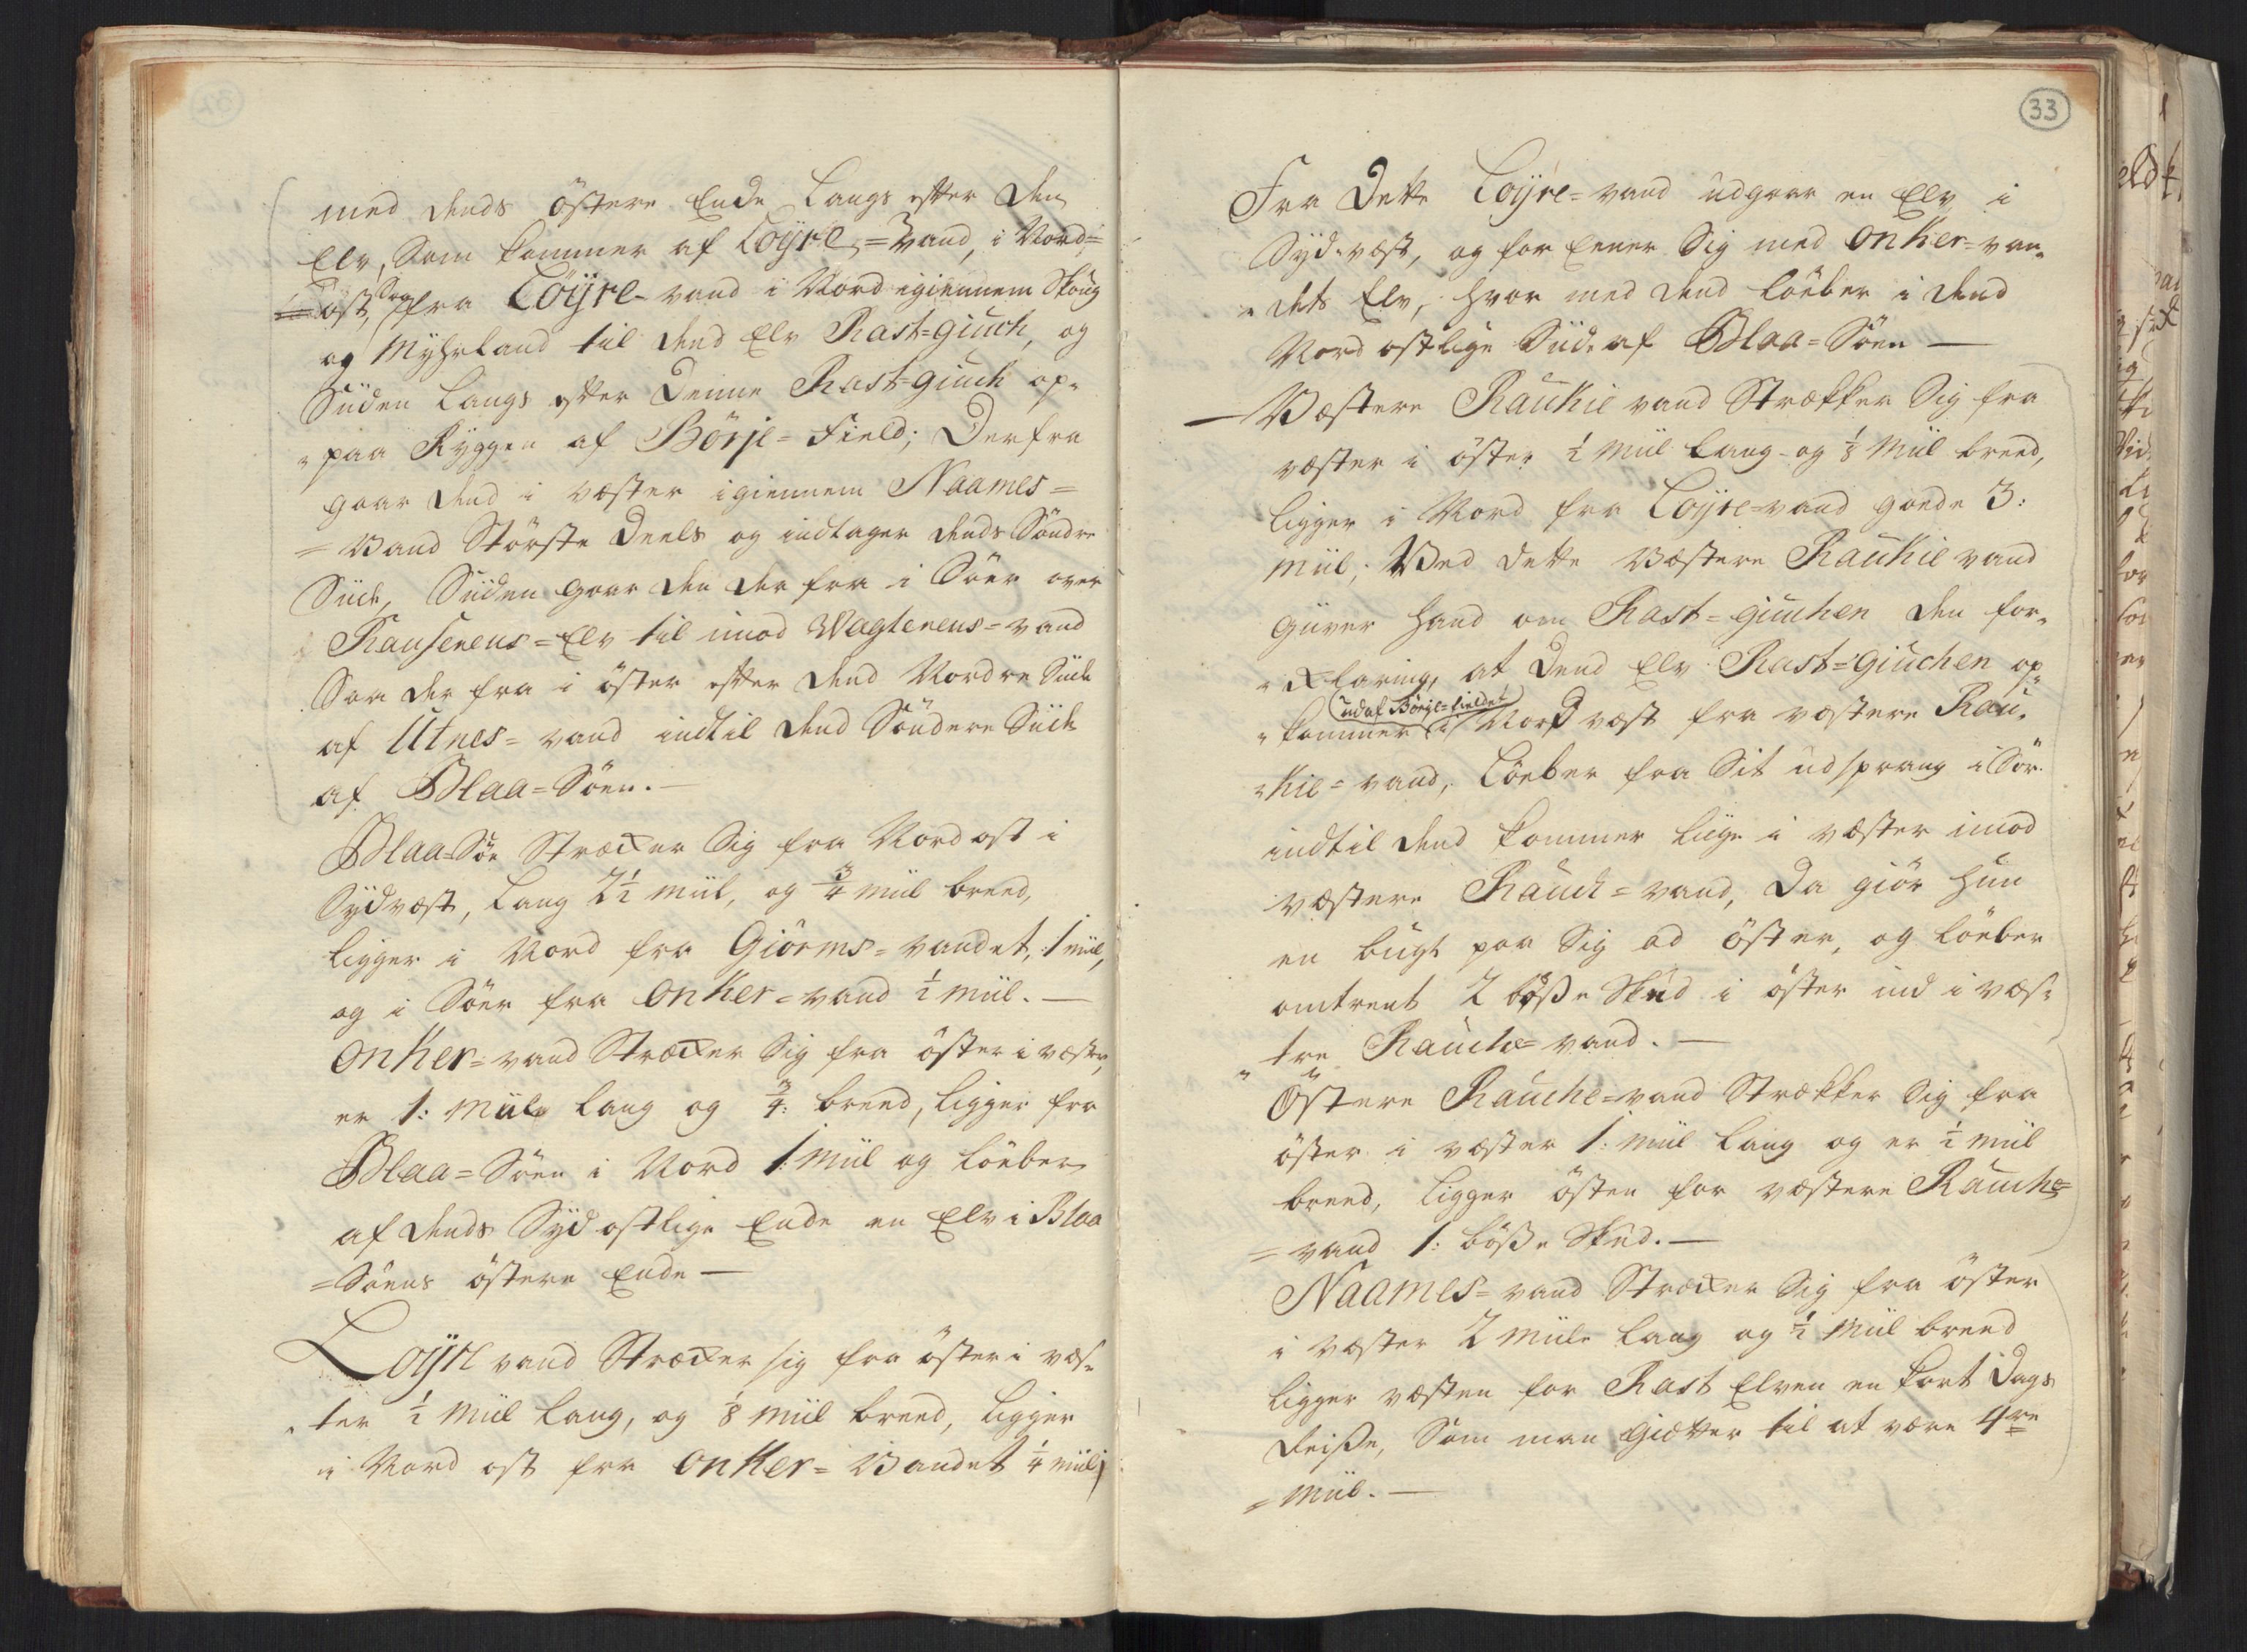 med dends östere Ende Langs efter den
Elv, Som kommer af Löyre=Vand, i Nord=
=ost, Saa fra Löyre-vand i Nord igiennem Skoug
og Myhrland til dend Elv Rast=giuch, og
Siiden Langs efter denne Rast=giuch op=
=paa Ryggen af Börje=Field; Derfra
gaar dend i væster igiennem Naames=
=Vand Störste Deels og indtager dends Söndre
Siide, Siiden gaar den der fra i Söer over
Ransereus=Elv til imod Wagtereus=vand
Saa der fra i öster efter dend Nordre Siide
af Utnes=vand indtil dend Söndere Siide
af Blaa=Söen.—
Blaa=Söe Stræcker Sig fra Nordost i
Sydvæst, Lang 2½ miil, og ¾ miil breed,
ligger i Nord fra Giörms=vandet, 1 miil,
og i Söer fra Onker=vand ½ miil.—
Onker=vand Stræcker Sig fra öster i væster,
er 1: Miile lang og ¾: breed, ligger fra
Blaa=Söen i Nord 1: Miil og löeber
af dends Sydostlige Ende en Elv i Blaa
=Söens östere Ende—
Löyre vand Stræcker sig fra öster i væs=
=ter ½ Miil lang, og ⅛ miil breed, ligger
i Nord ost fra Onker=Vandet ¼ miil;
33
Fra Dette Löyre=vand udgaar en Elv i
Syd-væst, og for Eener Sig med Onker=van=
=dets Elv, hvor med dend löeber i dend
Nordostlige Siide af Blaa=Söen —
— Væstere Raukie vand Strækker Sig fra
væster i öster ½ Miil lang og ⅛ Miil breed,
ligger i Nord fra Löyre=vand goede 3:
Miil; Ved dette Væstere Raukie vand
giiver hand om Rast=giuchen den for=
=klaring, at dend Elv Rast=giuchen op=
udaf Börge=fieldet
=kommer i Nord væst fra væstere Rau=
=kie=vand, Löeber fra Sit udsprang i Sör
indtil dend kommer liige i væster imod
væstere Rauch=vand, Da giör hun
en bugt paa Sig ad öster, og löeber
omtrent 2 böße Skud i öster ind i væs=
=tre Rauche vand.—
Östere Rauche=vand Strækker Sig fra
öster i væster 1: miil lang og er ½ miil
breed, ligger östen for væstere Rauche=
=vand 1: böße Skud.—
Naames=vand Stræcker Sig fra öster
i væster 2 Miile lang og ½ Miil breed
ligger væsten for Rast Elven en kort Dags
Reiße, Som man gietter til at være 4re
=Miil.—